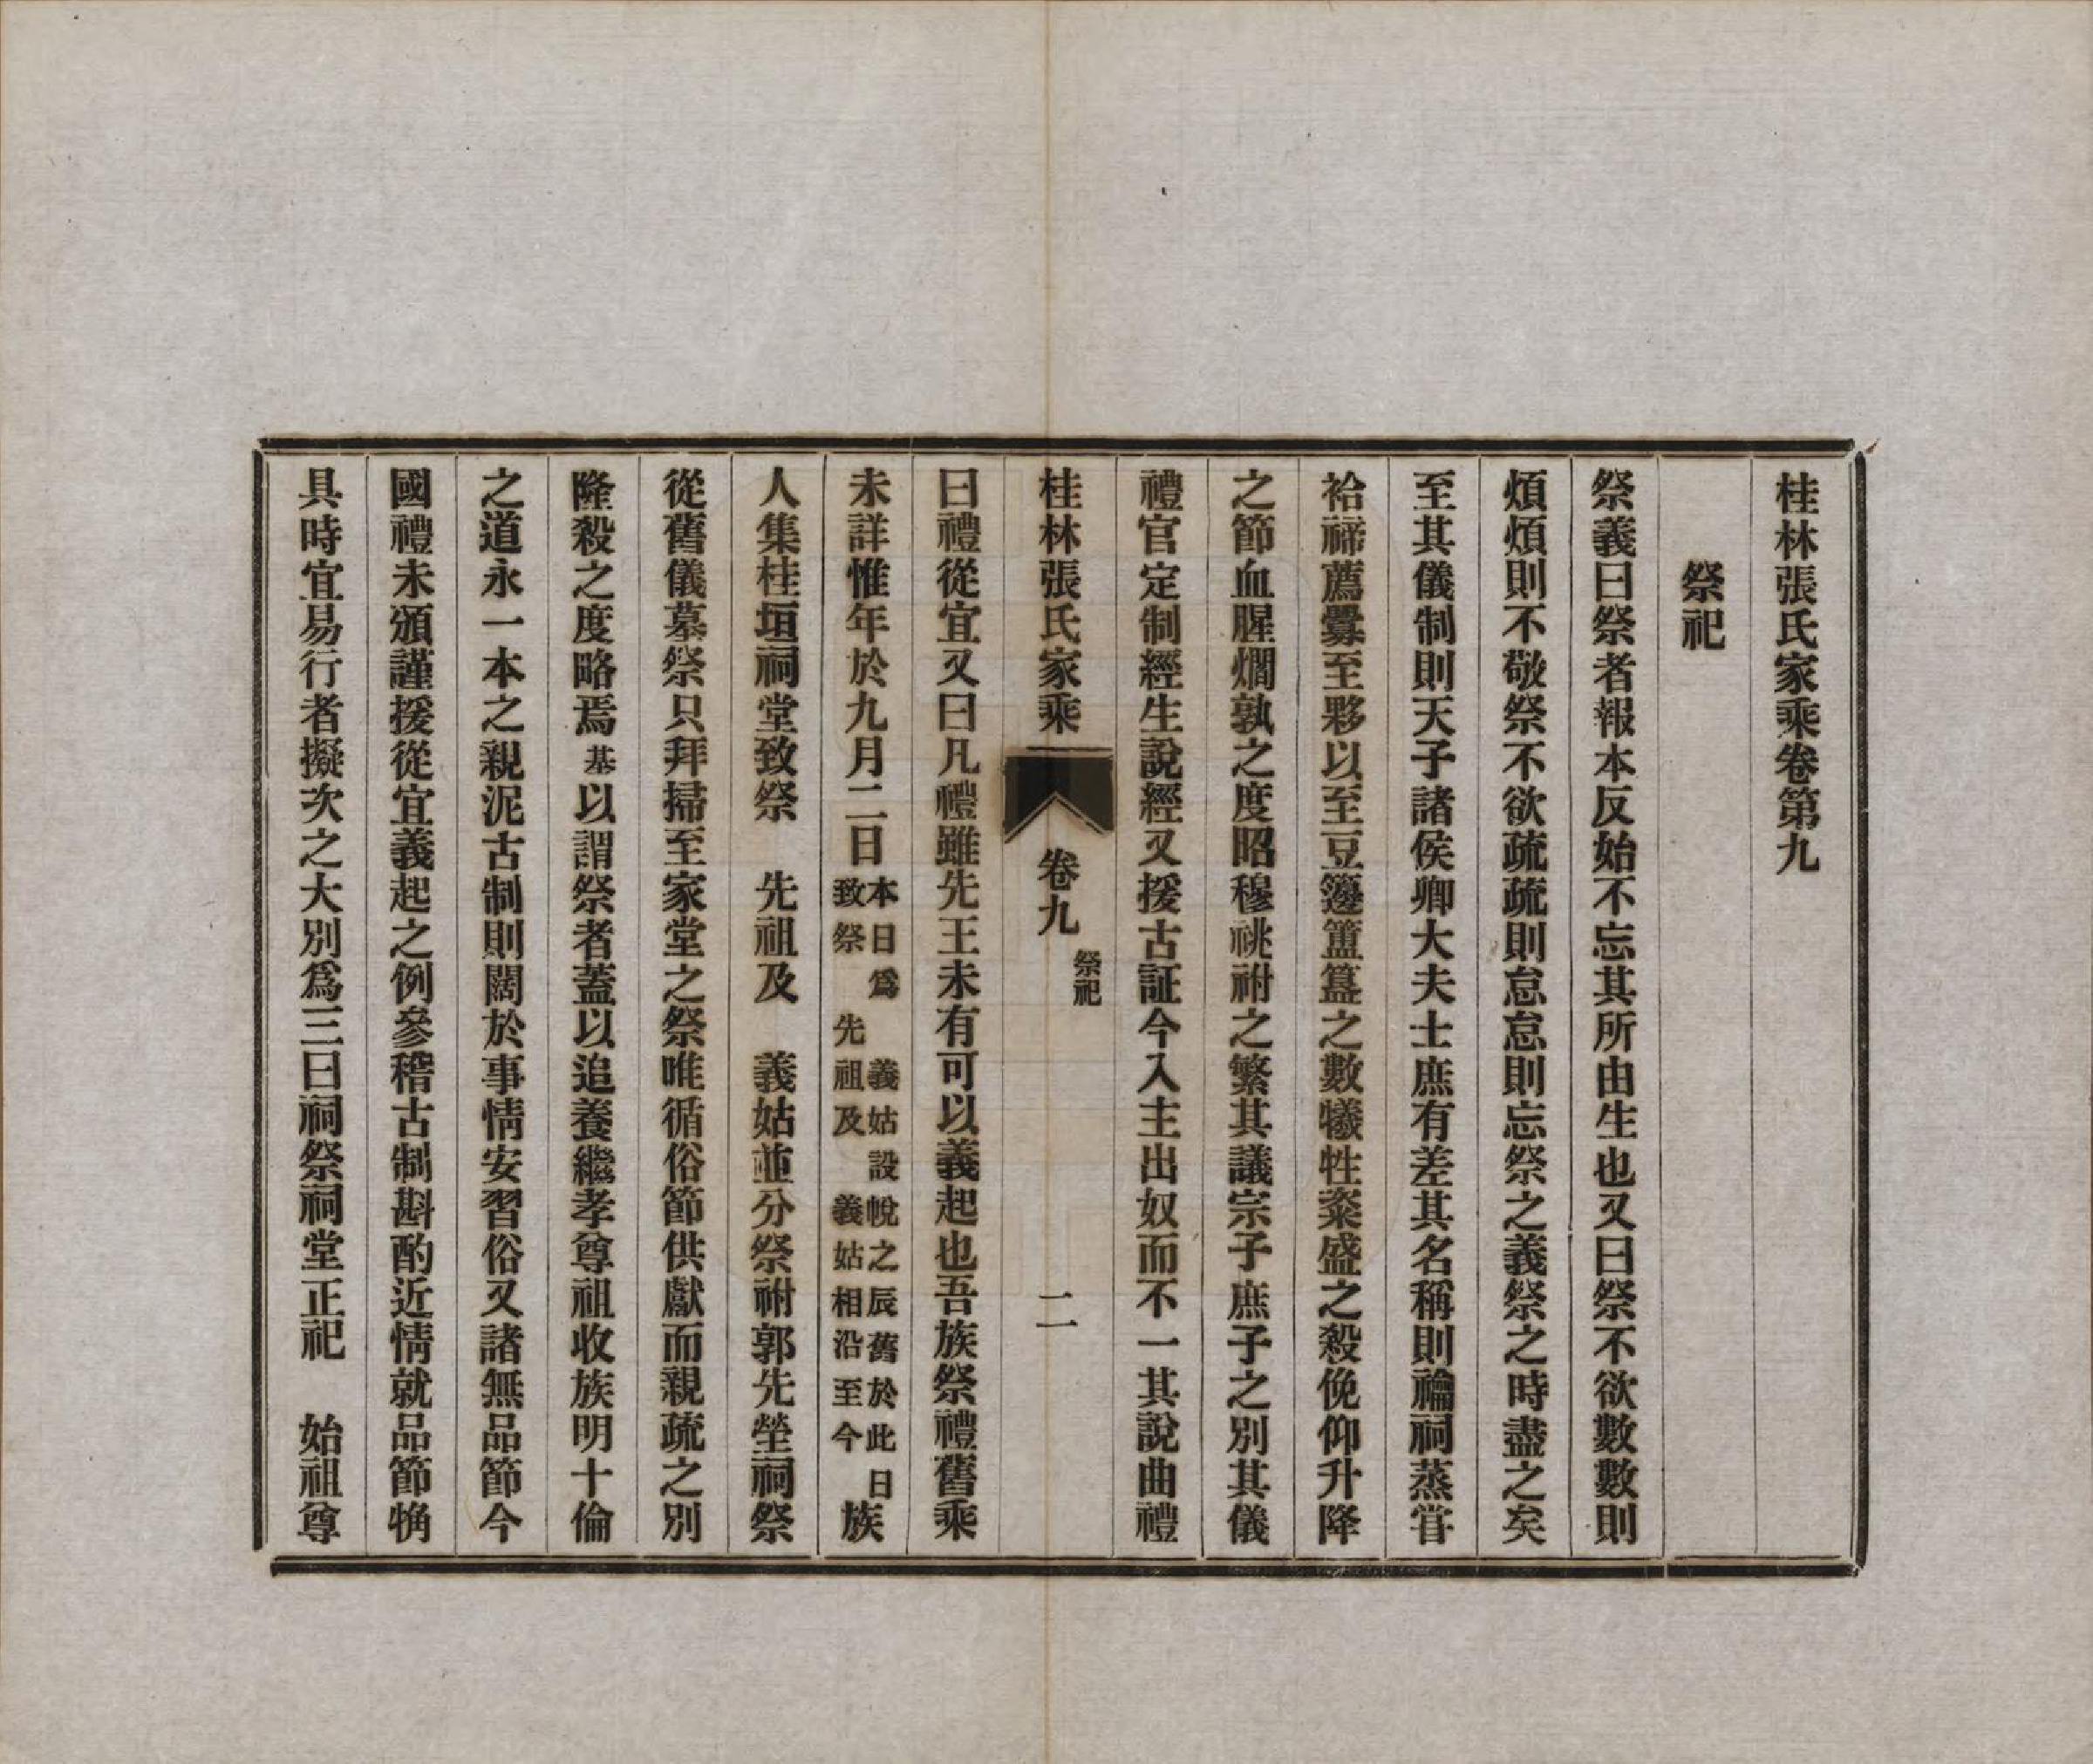 桂林張氏家乘卷第九
祭祀
祭義曰祭者報本反始不忘其所由生也又曰祭不欲數數則
煩煩則不敬祭不欲疏疏則怠怠則忘祭之義祭之時盡之矣
至其儀制則天子諸侯卿大夫士庶有差其名稱則禴祠蒸甞
祫禘薦釁至夥以至豆籩簠簋之數犧牲粢盛之殺俛仰升降
之節血腥爓孰之度昭穆祧祔之繁其議宗子庶子之別其儀
禮官定制經生說經又援古証今入主出奴而不一其說曲禮
桂林張氏家乘 卷九 祭祀 二
曰禮從宜又曰凡禮雖先王未有可以義起也吾族祭禮舊乘
未詳惟年於九月二日本日爲 義姑設帨之辰舊於此日致祭 先祖及 義姑相沿至今族
人集桂垣祠堂致祭 先祖及 義姑並分祭祔郭先塋祠祭
從舊儀墓祭只拜掃至家堂之祭唯循俗節供獻而親疏之別
隆殺之度略焉基以謂祭者蓋以追養繼孝尊祖收族明十倫
之道永一本之親泥古制則闊於事情安習俗又諸無品節今
國禮未頒謹援從宜義起之例參稽古制斟酌近情就品節觕
具時宜易行者擬次之大別爲三曰祠祭祠堂正祀 始祖尊